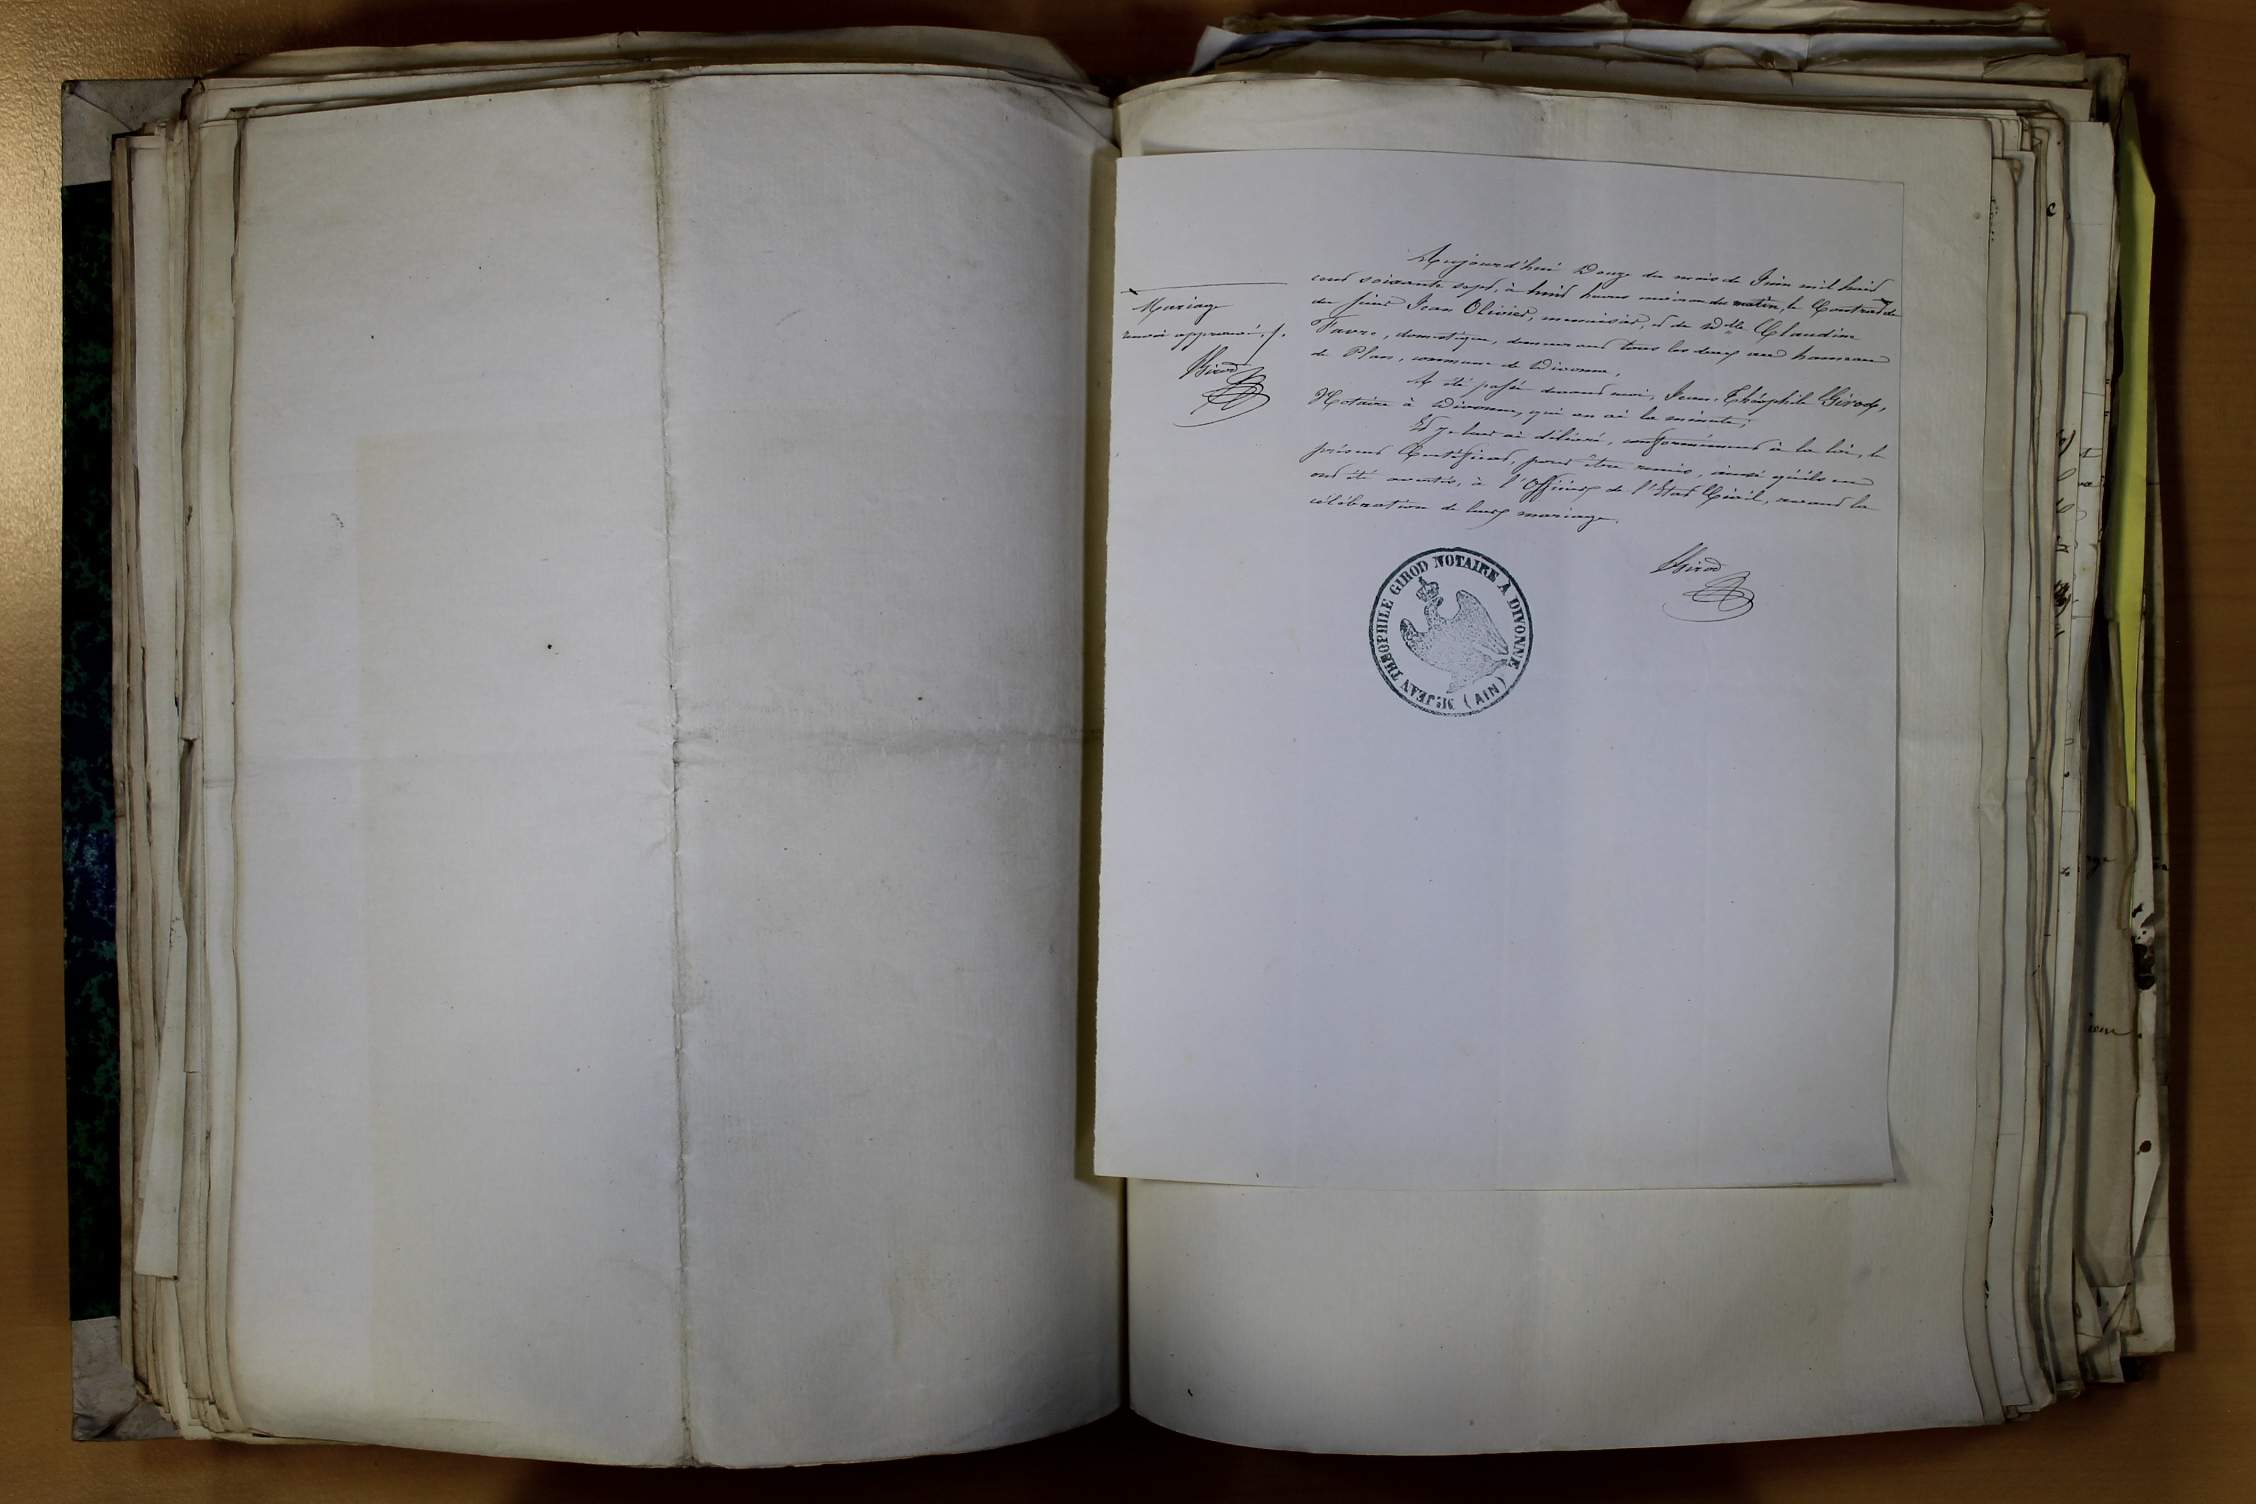 Aujourd'hui Douze du mois de Juin mil huit
cent soixante sept, à huit heures moins du matin, le Contrat de
du sieur Jean Olivier, menuisier, et de Dlle Claudine
Favre, domestique, demeurant tous les deux au hameau
de Plan, commune de Divonne,
A été passé devant moi, Jean-Théophile Girod,
Notaire à Divonne, qui en ai la minute;
Et je leur ai délivré, conformément à la loi, le
présent Certificat, pour être remis, ainsi qu'ils en
ont été avertis, à l'Officier de l'Etat Civil, avant la
célébration de leur mariage.
Girod
Mariage
renvoi approuvé ./.
Girod
Mr. JEAN THEOPHILE GIROD NOTAIRE A DIVONNE (AIN)